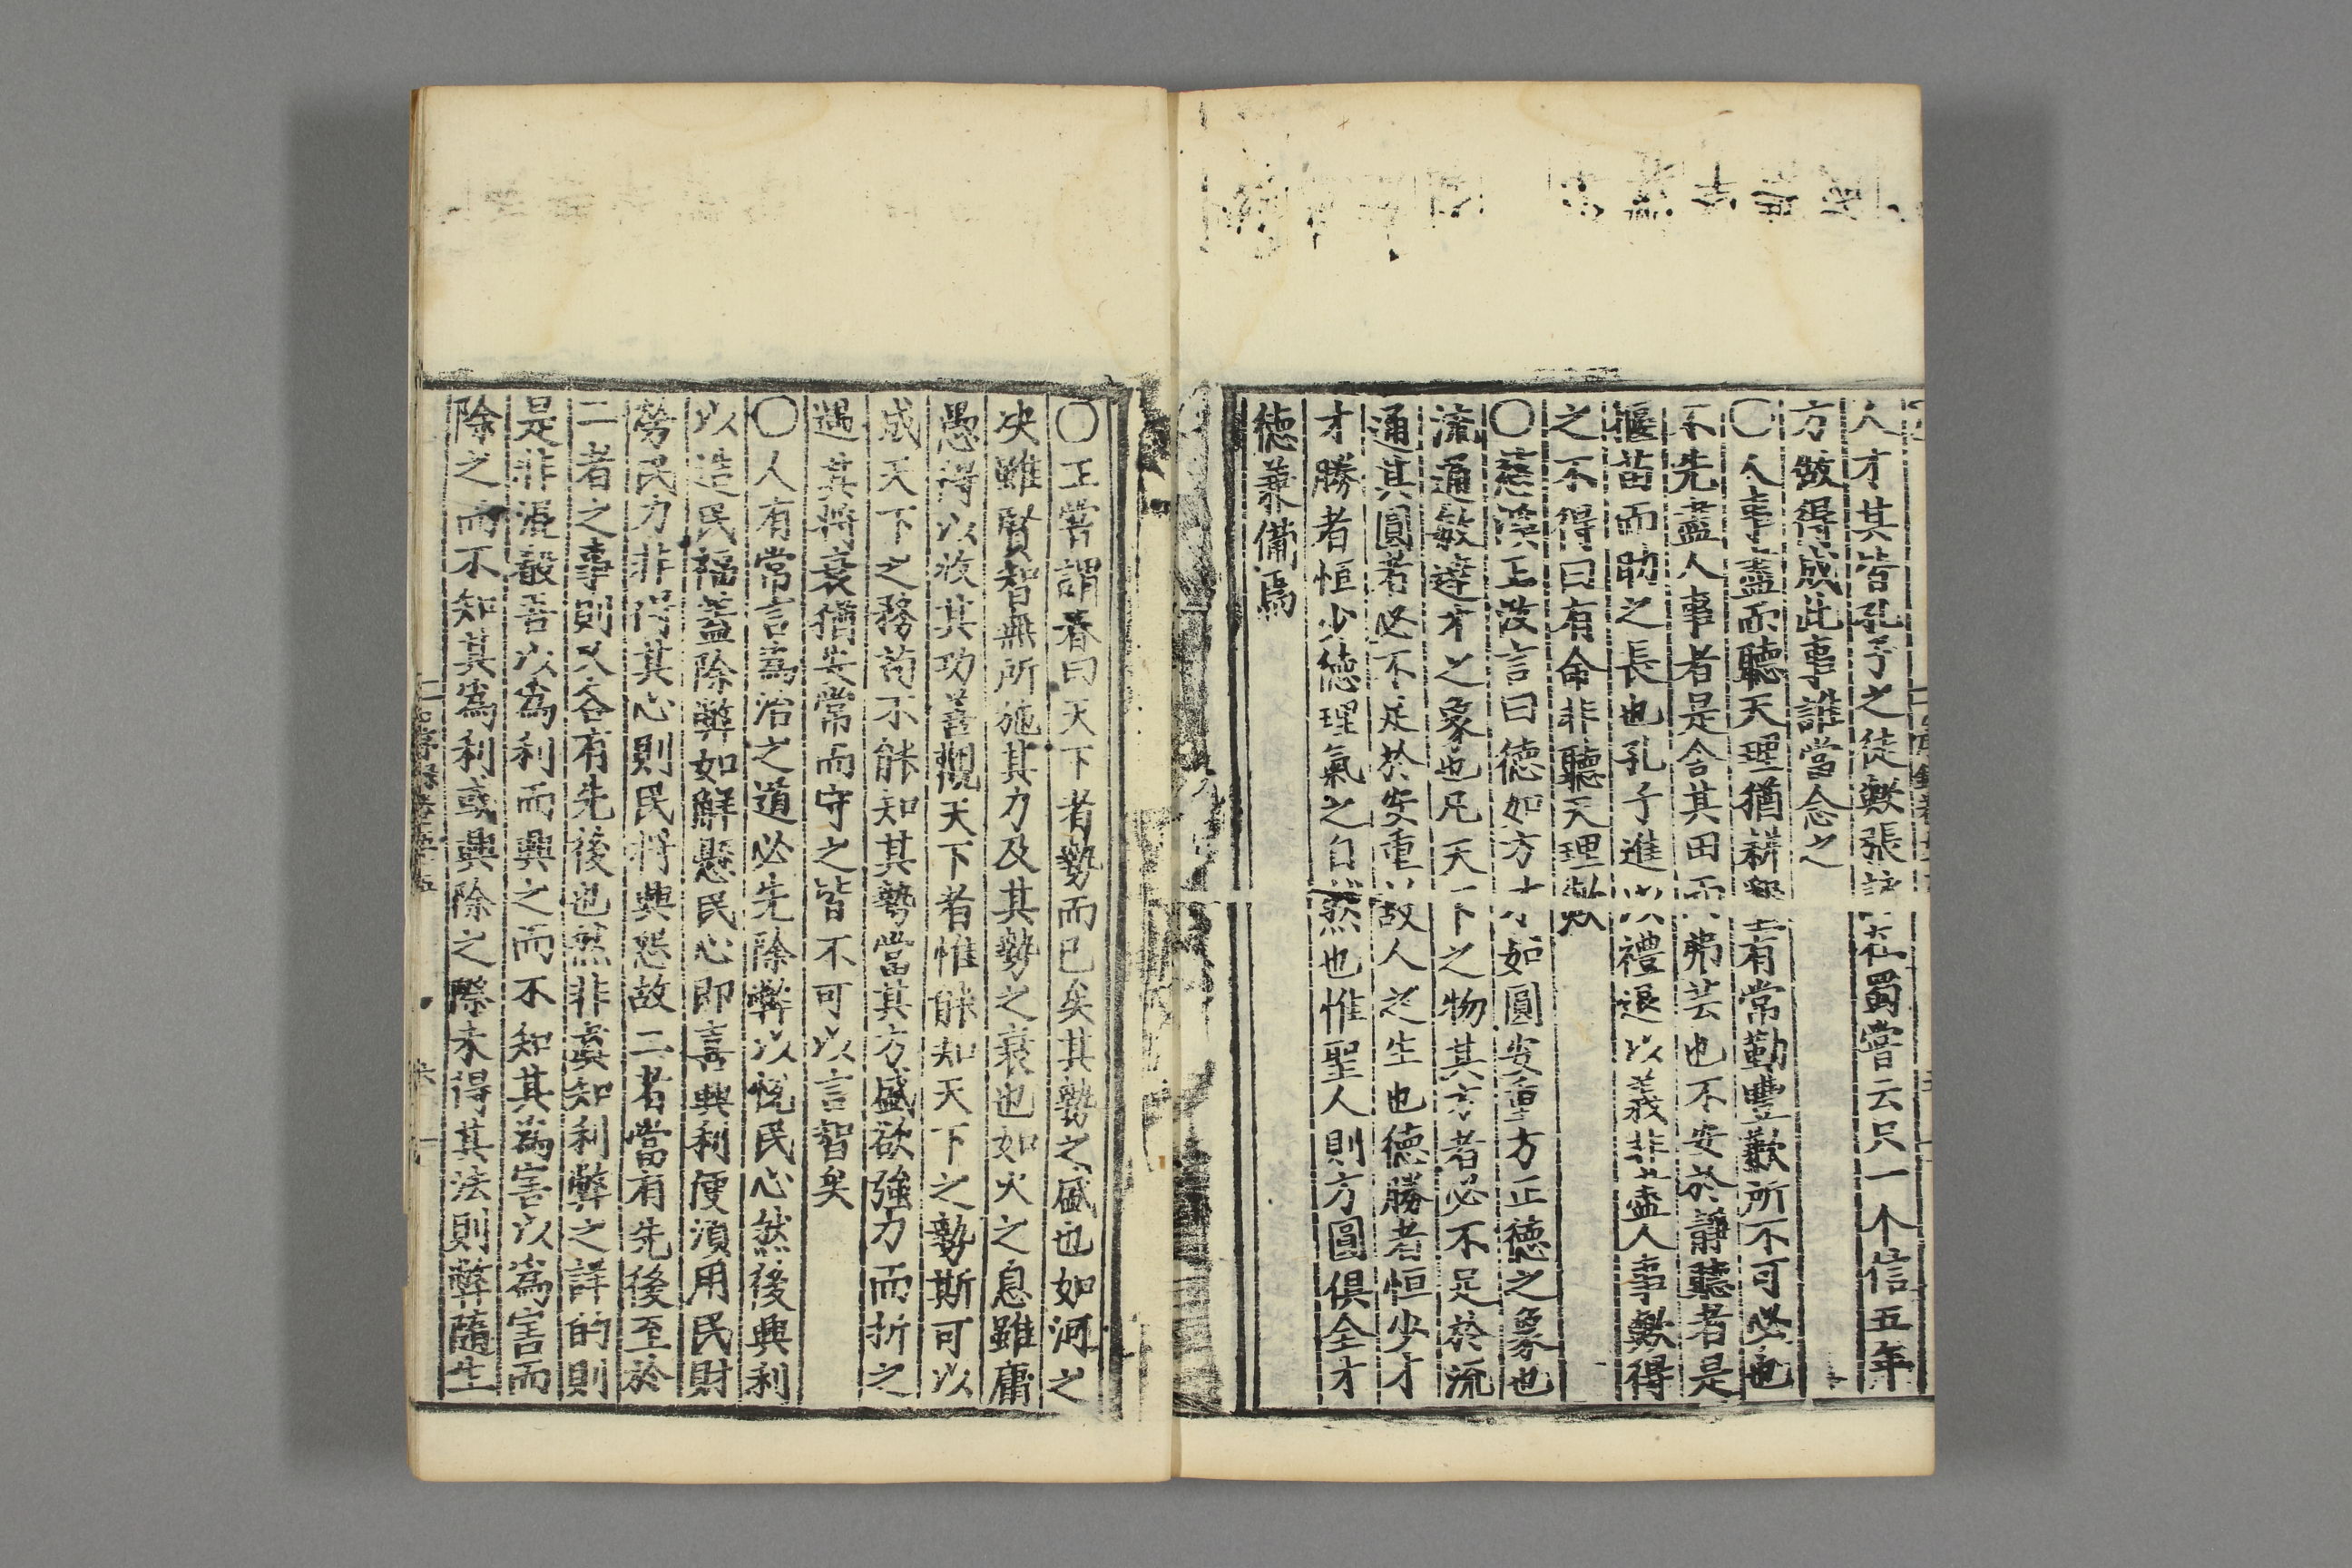 人才其嘗孔子之徒歟張詠在蜀嘗云只一个信五年
方做得成此事誰當念之
〇人事盡而聽天理猶耕墾有常勤豐歉所不可必也
不先盡人事者是舍其田而弗芸也不安於靜聽者是
揠苗而助之長也孔子進以禮退以義非盡人事歟得
之不得曰有命非聽天理歟
〇慈溪王政言曰德如方才如圓安重方正德之象也
流通敏達才之象也凡天下之物其方者必不足於流
通其圓者必不足於安重故人之生也德勝者恒少才
才勝者恒少德理氣之自然也惟聖人則方圓俱全才
德兼備焉
〇正嘗謂春曰天下者勢而已矣其勢之盛也如河之
决雖賢智無所施其力及其勢之衰也如火之息雖庸
愚得以收其功善觀天下者惟能知天下之勢斯可以
成天下之務苟不能知其勢當其方盛欲強力而折之
遇其將衰猶按常而守之皆不可以言智矣
〇人有常言爲治之道必先除弊以悅民心然後興利
以造民福蓋除弊如解懸民心即喜興利便須用民財
勞民力非得其心則民將興怨故二者當有先後至於
二者之事則又各有先後也然非眞知利弊之詳的則
是非混殽吾以爲利而興之而不知其爲害以爲害而
除之而不知其爲利或興除之際未得其法則弊隨生